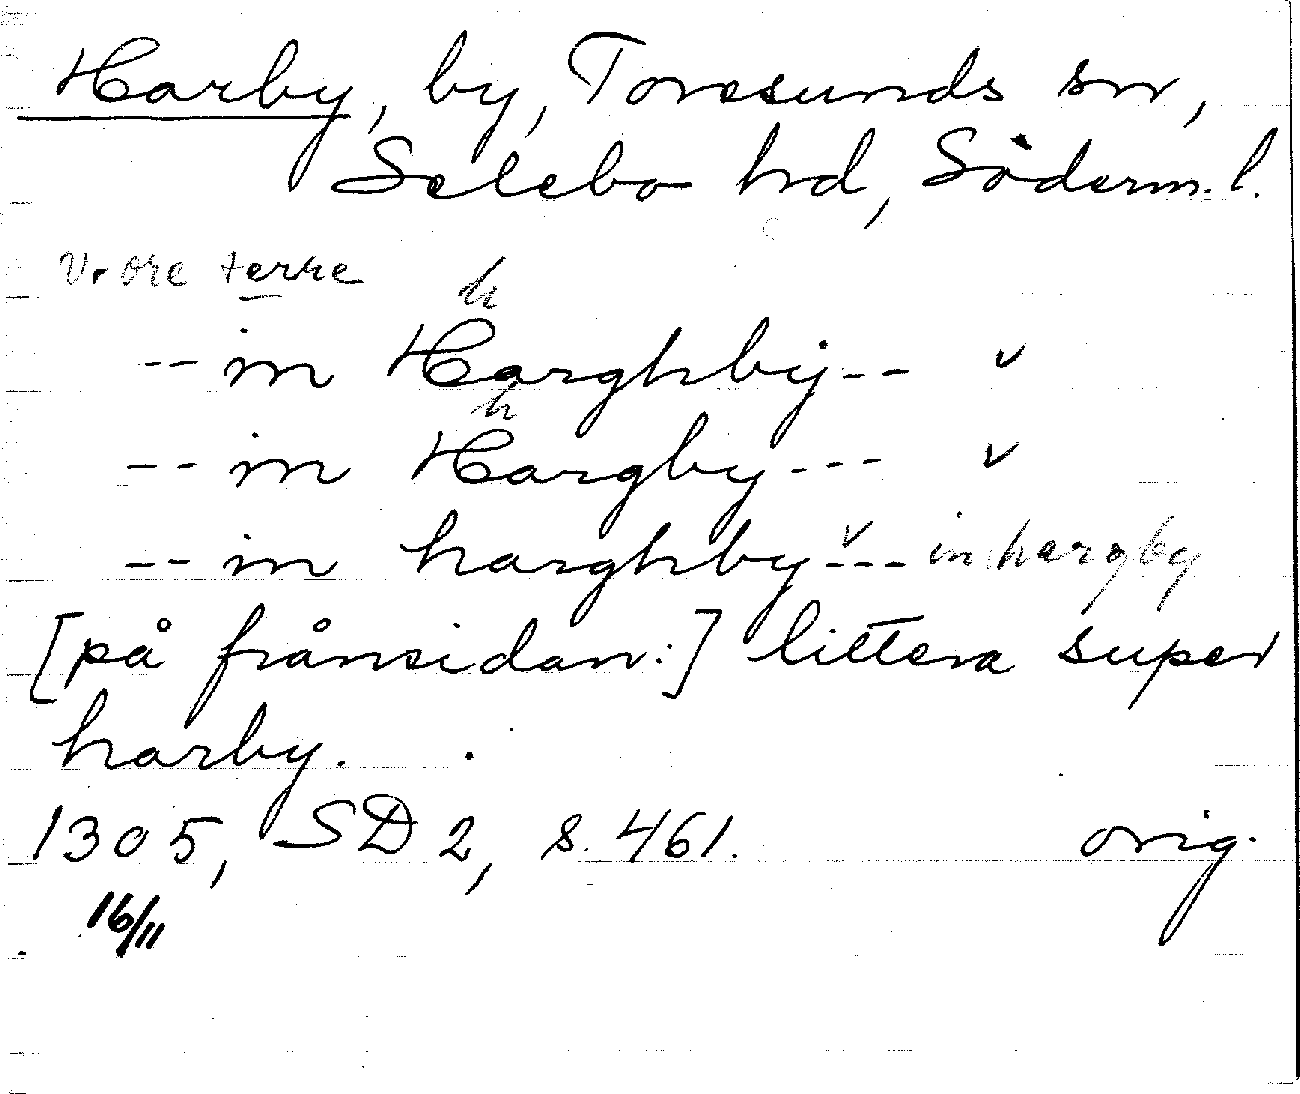 Harby, by, Toresunds sn,
Selebo hd, Söderm. l.
V. ore terre
h
-- in Harghby -- v
h
-- in Hargby --- v
-- in harghby v --- in hargby
[på frånsidan:] littera super
harby.
1305, SD 2, s. 461. orig.
16/11